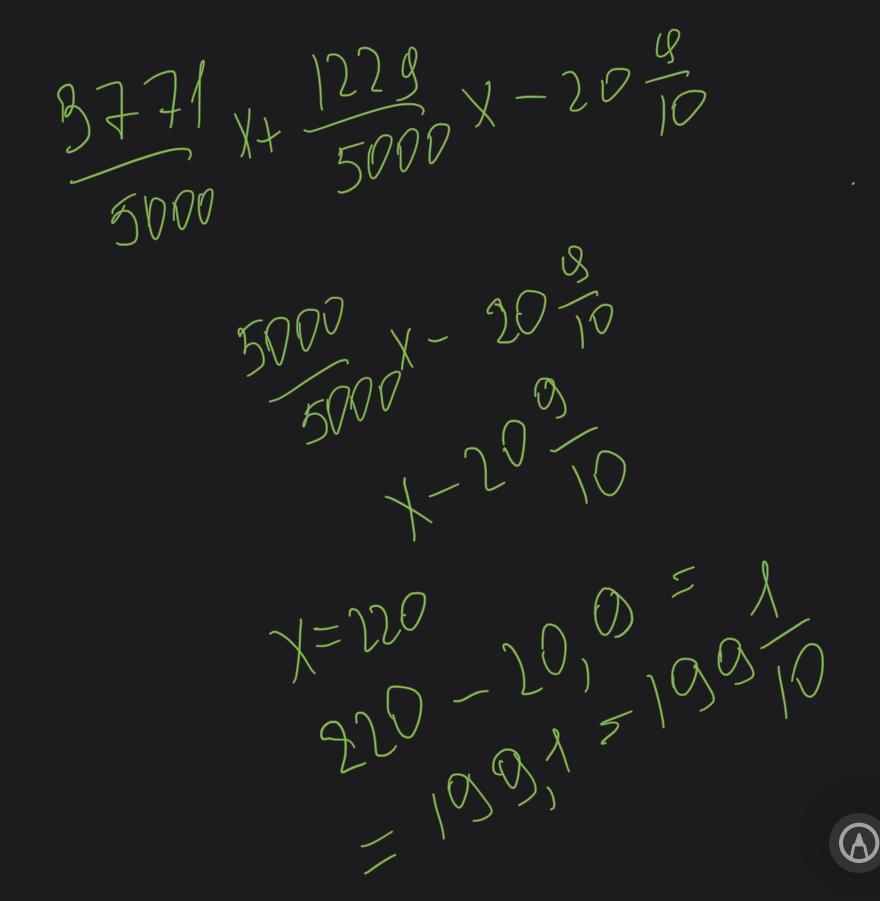 3771/5000 x + 1229/5000 x - 20 9/10
5000/5000 x - 20 9/10
x - 20 9/10
x = 220
220 - 20,9 =
= 199,1 = 199 1/10